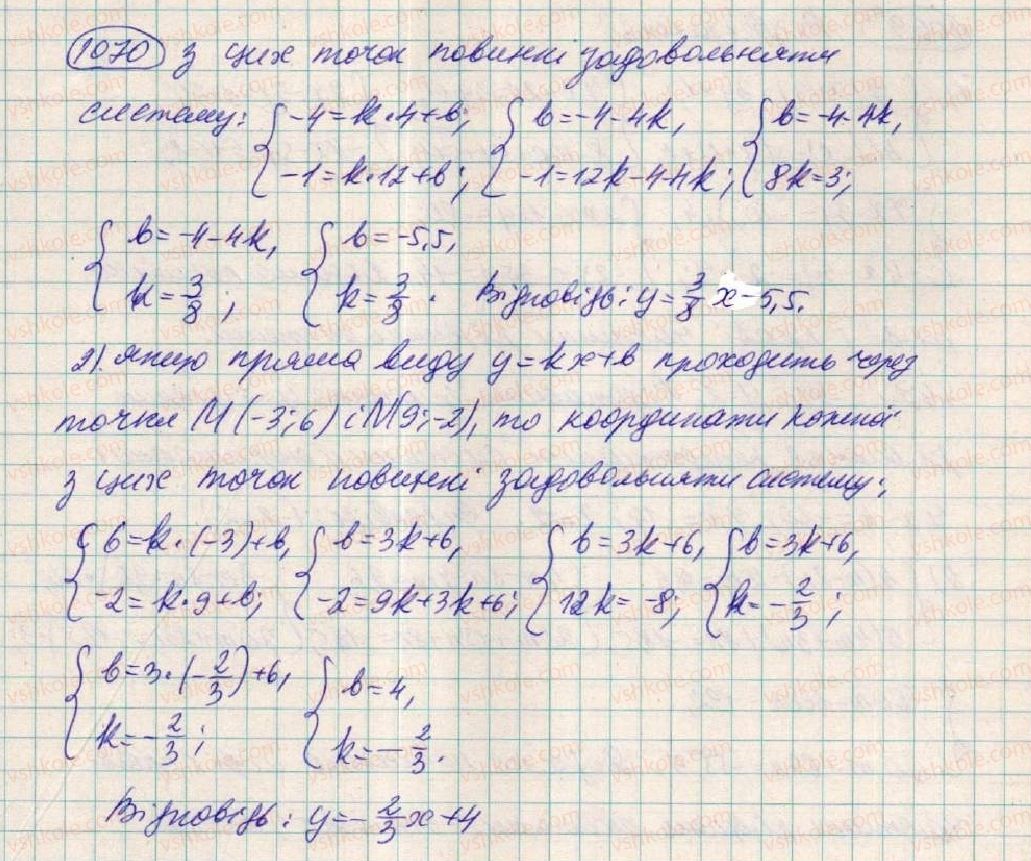 1070 з цих точок повинні задовольняти
систему: { -4=k·4+b; { b=-4-4k, { b=-4-4k,
-1=k·12+b; -1=12k-4-4k; 8k=3;
{ b=-4-4k, { b=-5,5,
k=3/8; k=3/8. Відповідь: y=3/8 x-5,5.
2). якщо пряма виду y=kx+b проходить через
точки M(-3;6) і N(9;-2), то координати кожної
з цих точок повинні задовольняти систему:
{ 6=k·(-3)+b, { b=3k+6, { b=3k+6, { b=3k+6,
-2=k·9+b; -2=9k+3k+6; 12k=-8; k=-2/3;
{ b=3·(-2/3)+6, { b=4,
k=-2/3; k=-2/3.
Відповідь: y=-2/3 x+4